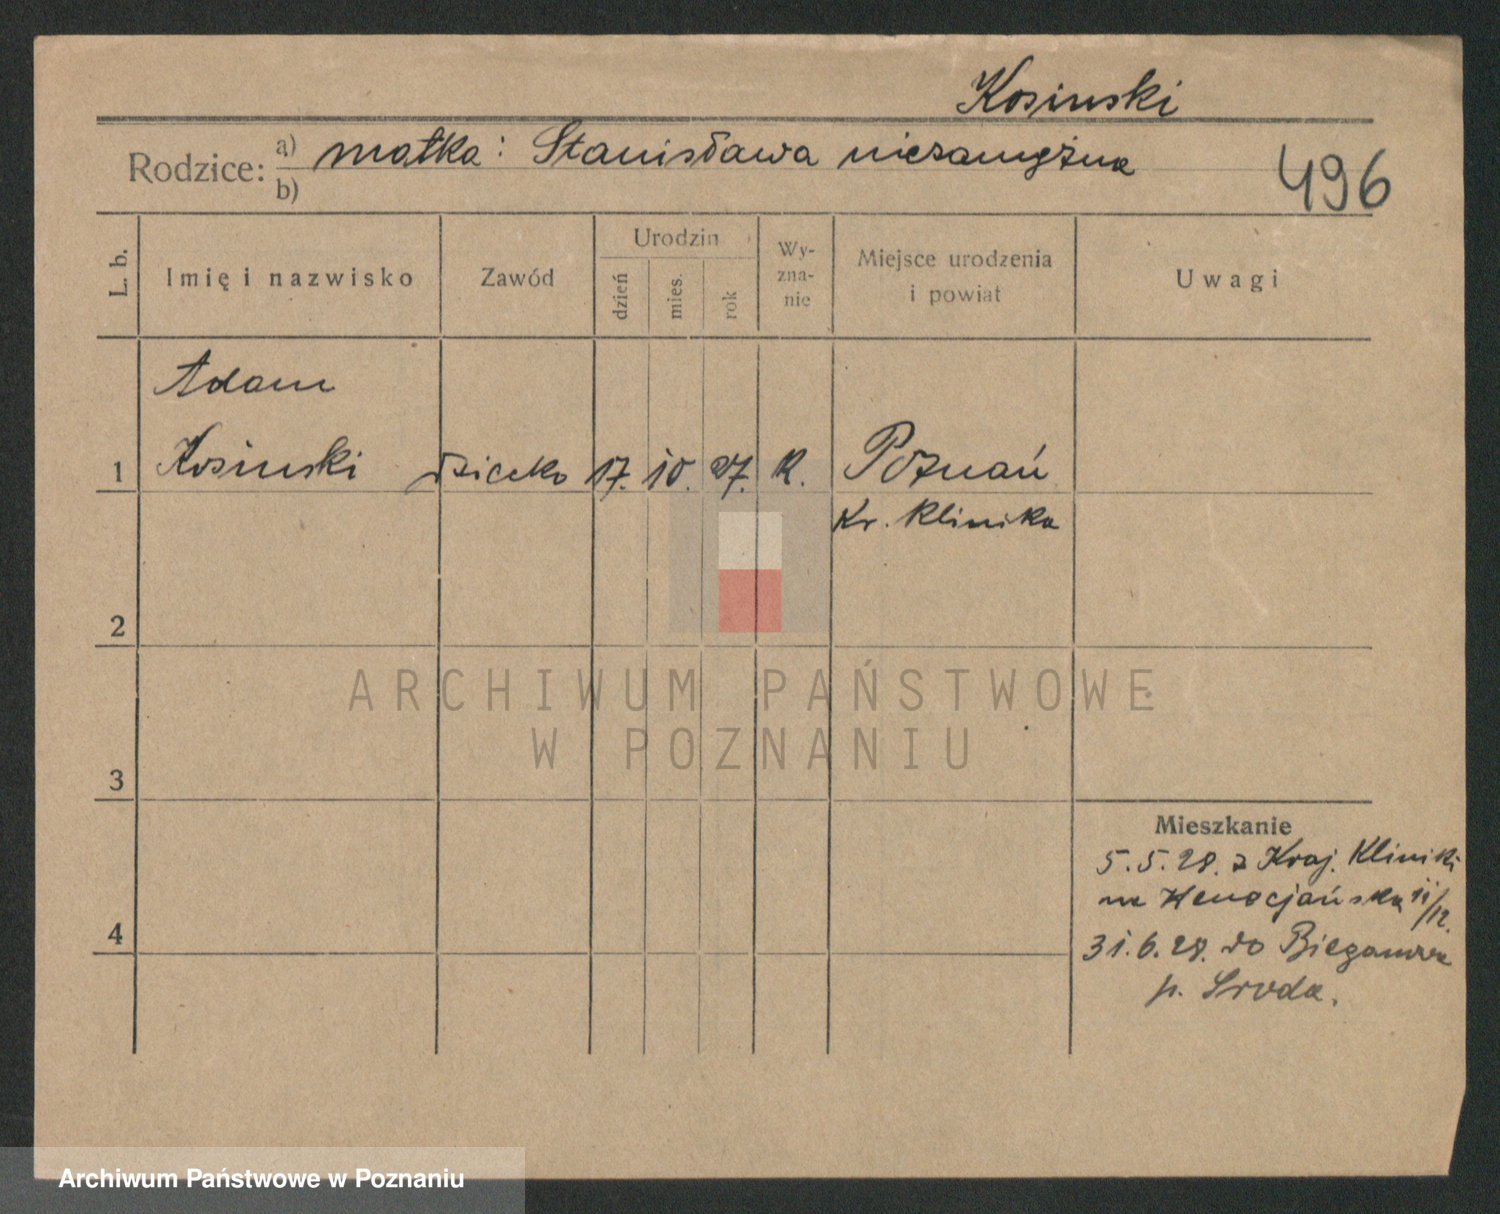 Kosinski
Rodzice: a) matka: Stanisława niezamężna
b)
496
L. b.
Imię i nazwisko
Zawód
Urodzin
dzień
mies.
rok
Wy-
zna-
nie
Miejsce urodzenia
i powiat
Uwagi
Adam
1 Kosinski dziecko 17. 10. 27. K. Poznań
Kr. Klinika
2
ARCHIWUM PAŃSTWOWE
W POZNANIU
3
Mieszkanie
5.5.28. z Kraj. Kliniki
na 11/12.
4
31.6.28. do
p. Sroda.
Archiwum Państwowe w Poznaniu